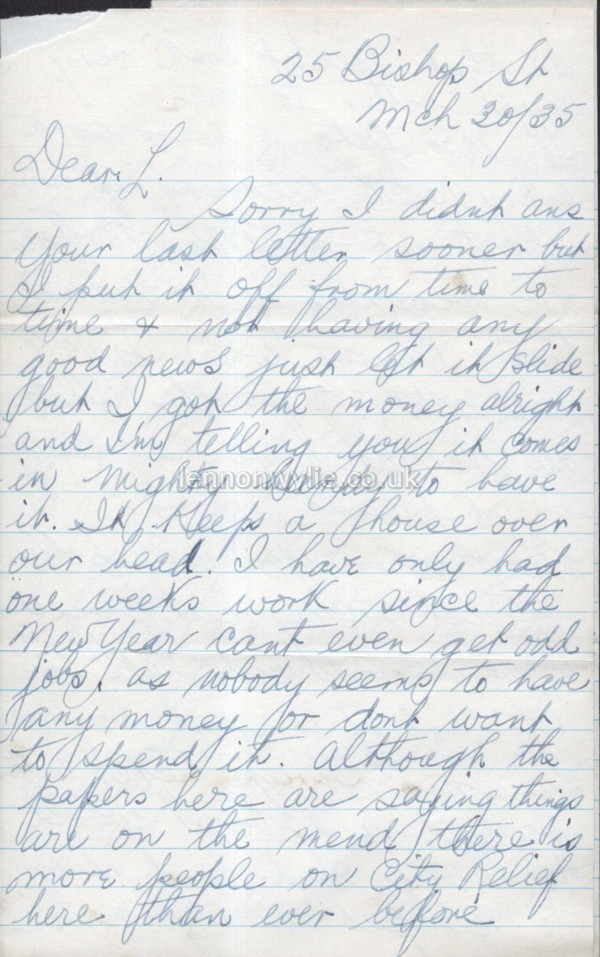 25 Bishop St
Mch 30/35
Dear L.
Sorry I didnt ans
your last letter sooner but
I put it off from time to
time & not having any
good news just let it slide
but I got the money alright
and I'm telling you it comes
in mighty handy to have
it. It keeps a house over
our head. I have only had
one weeks work since the
New Year cant even get odd
jobs. as nobody seems to have
any money or dont want
to spend it. although the
papers here are saying things
are on the mend there is
more people on City Relief
here than ever before
lennonwylie.co.uk